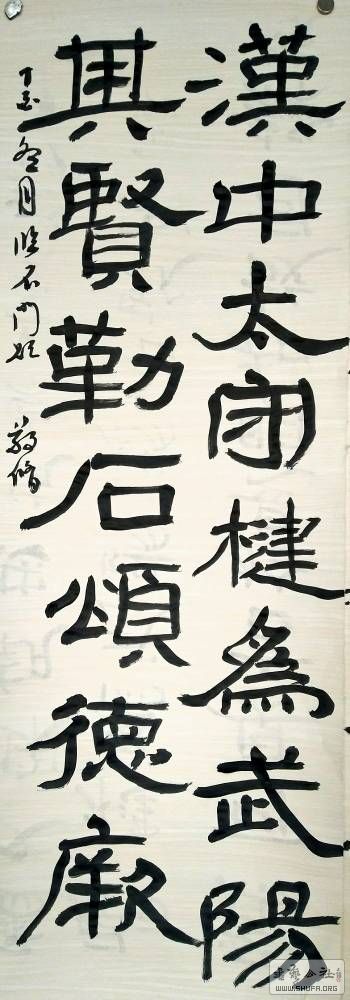 漢中太守楗為武陽
其賢勒石頌德厥
丁酉冬月臨石門頌
WWW.SHUFA.ORG